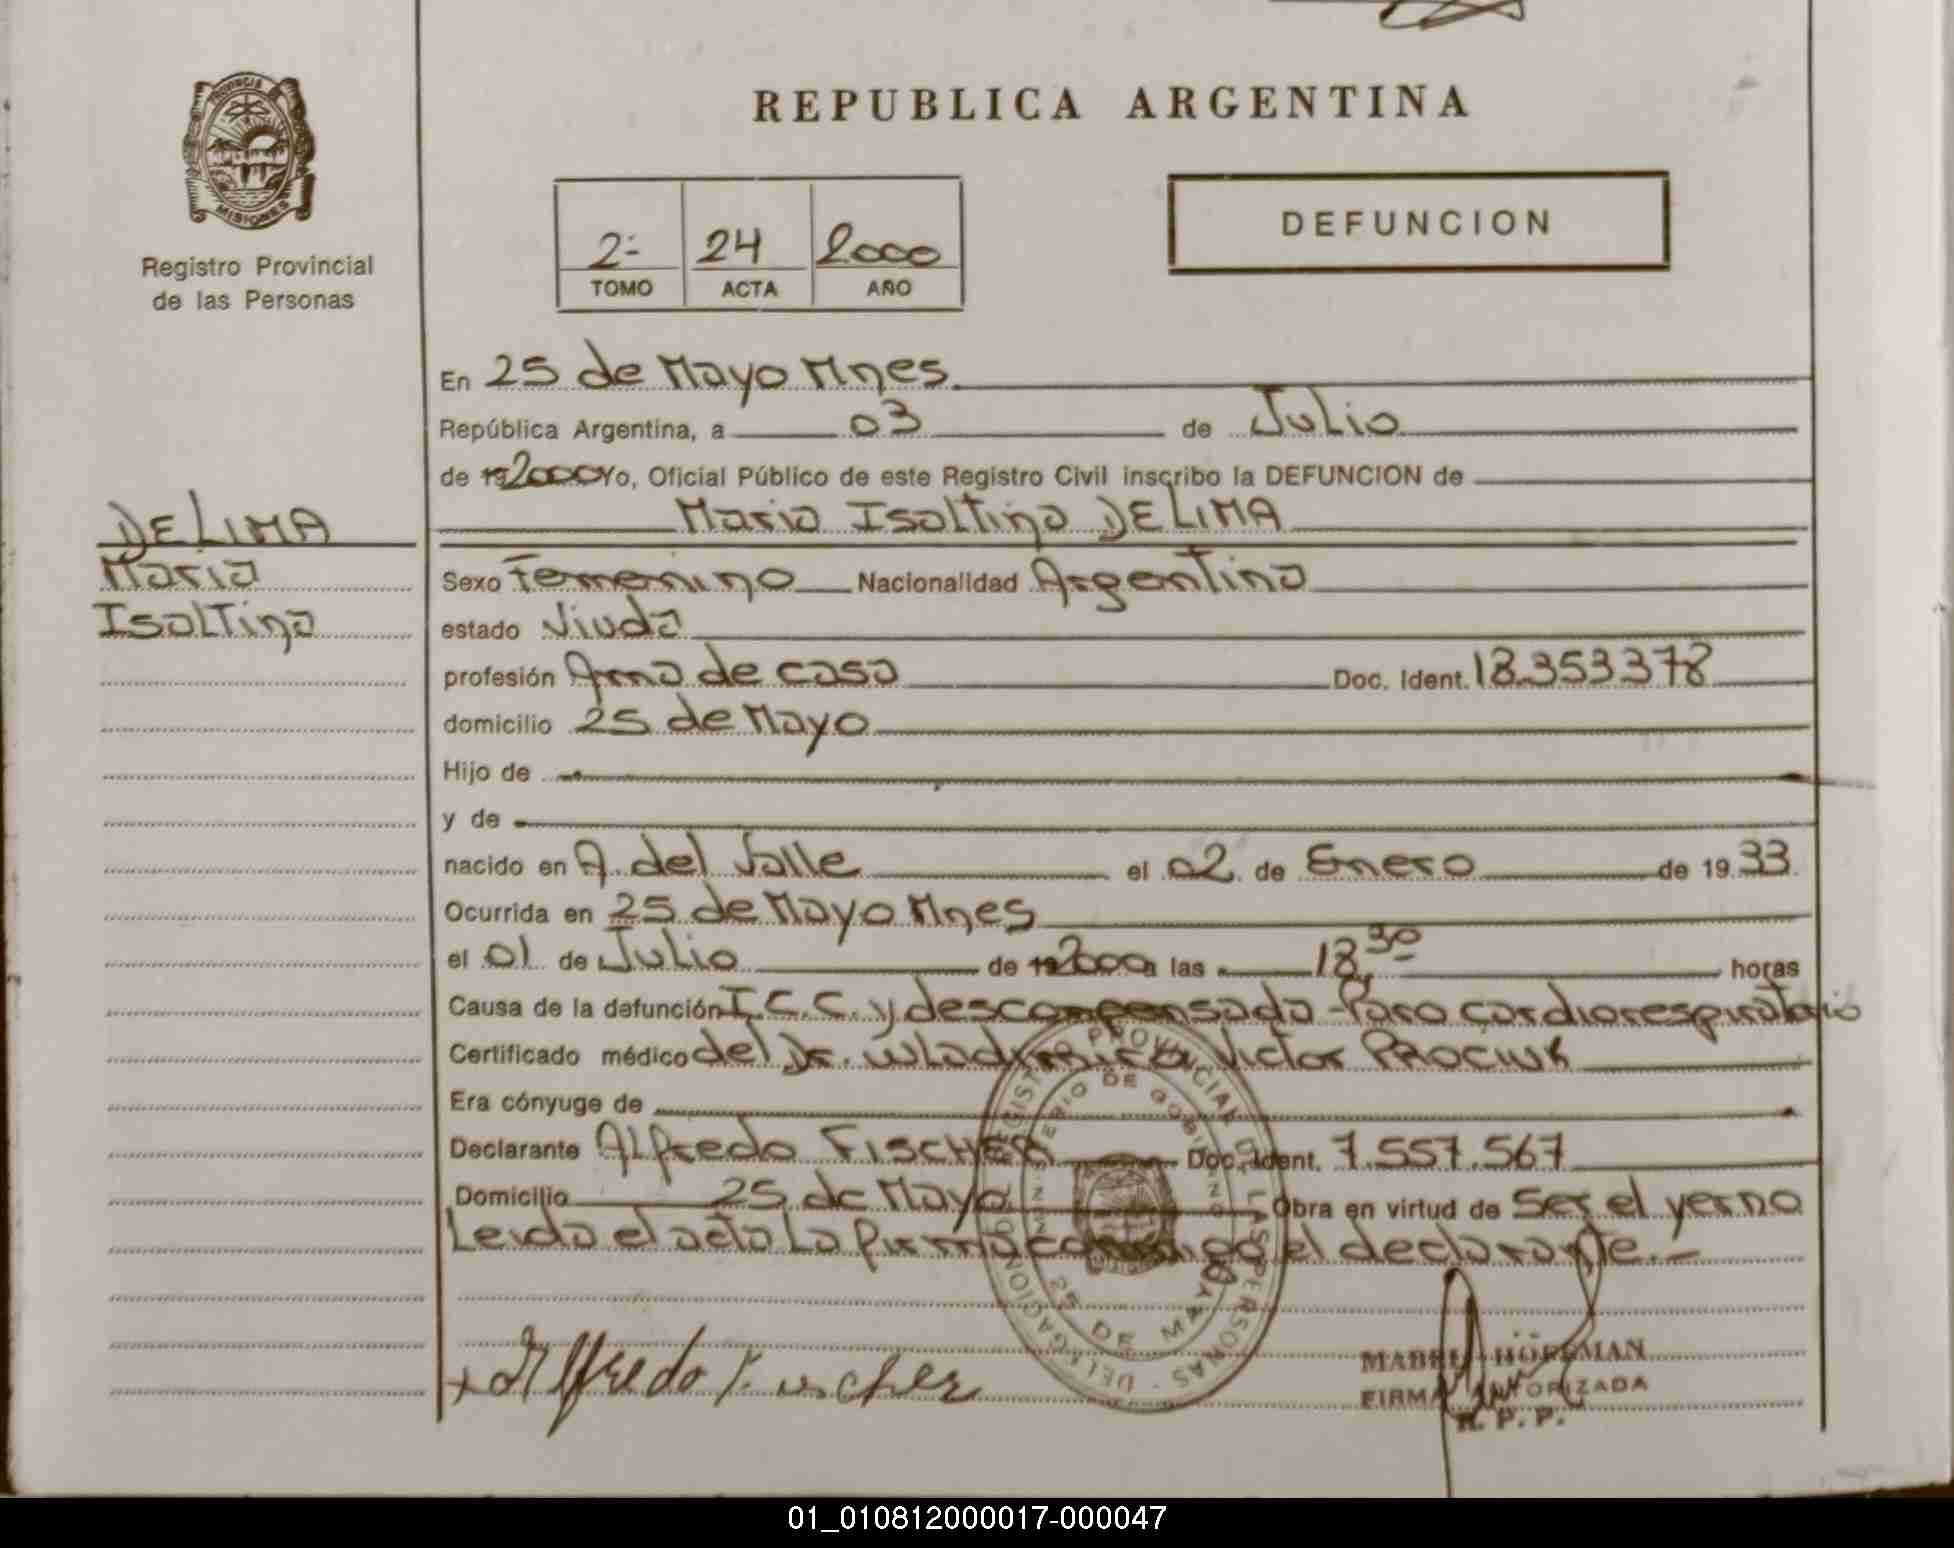 PROVINCIA
MISIONES
Registro Provincial
de las Personas
REPUBLICA ARGENTINA
2- 24 2000
TOMO ACTA AÑO
DEFUNCION
En 25 de Mayo Mnes.
República Argentina, a 03 de Julio
de 192000 Yo, Oficial Público de este Registro Civil inscribo la DEFUNCION de
Maria Isoltina DE LIMA
DE LIMA
Maria
Isoltina
Sexo Femenino Nacionalidad Argentina
estado Viuda
profesión Ama de casa Doc. Ident. 18.353378
domicilio 25 de Mayo
Hijo de
y de
nacido en A. del Valle el 02 de Enero de 19 33
Ocurrida en 25 de Mayo Mnes
el 01 de Julio de 192000 a las 18,30 horas
Causa de la defunción I.C.C. y descompensada - Paro cardiorespiratorio
Certificado médico del Dr. Wladimiro Victor PROCIUK
Era cónyuge de
Declarante Alfredo FISCHER Doc. Ident. 7.557.567
Domicilio 25 de Mayo Obra en virtud de Ser el yerno
Leida el acta La firma conmigo el declarante.-
REGISTRO PROVINCIAL DE LAS PERSONAS - DELEGACION
25 DE MAYO
+ Alfredo Fischer
MABEL HOFFMAN
FIRMA AUTORIZADA
R. P. P.
01_010812000017-000047